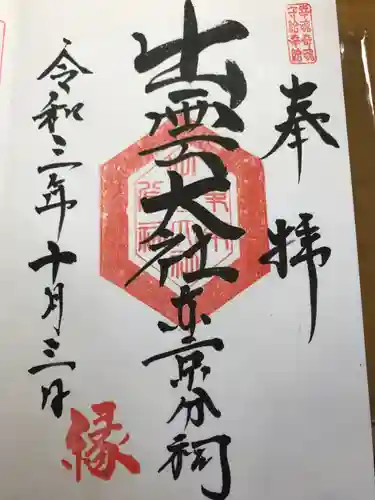 奉拝
出雲大社東京分祠
令和三年十月三日
縁